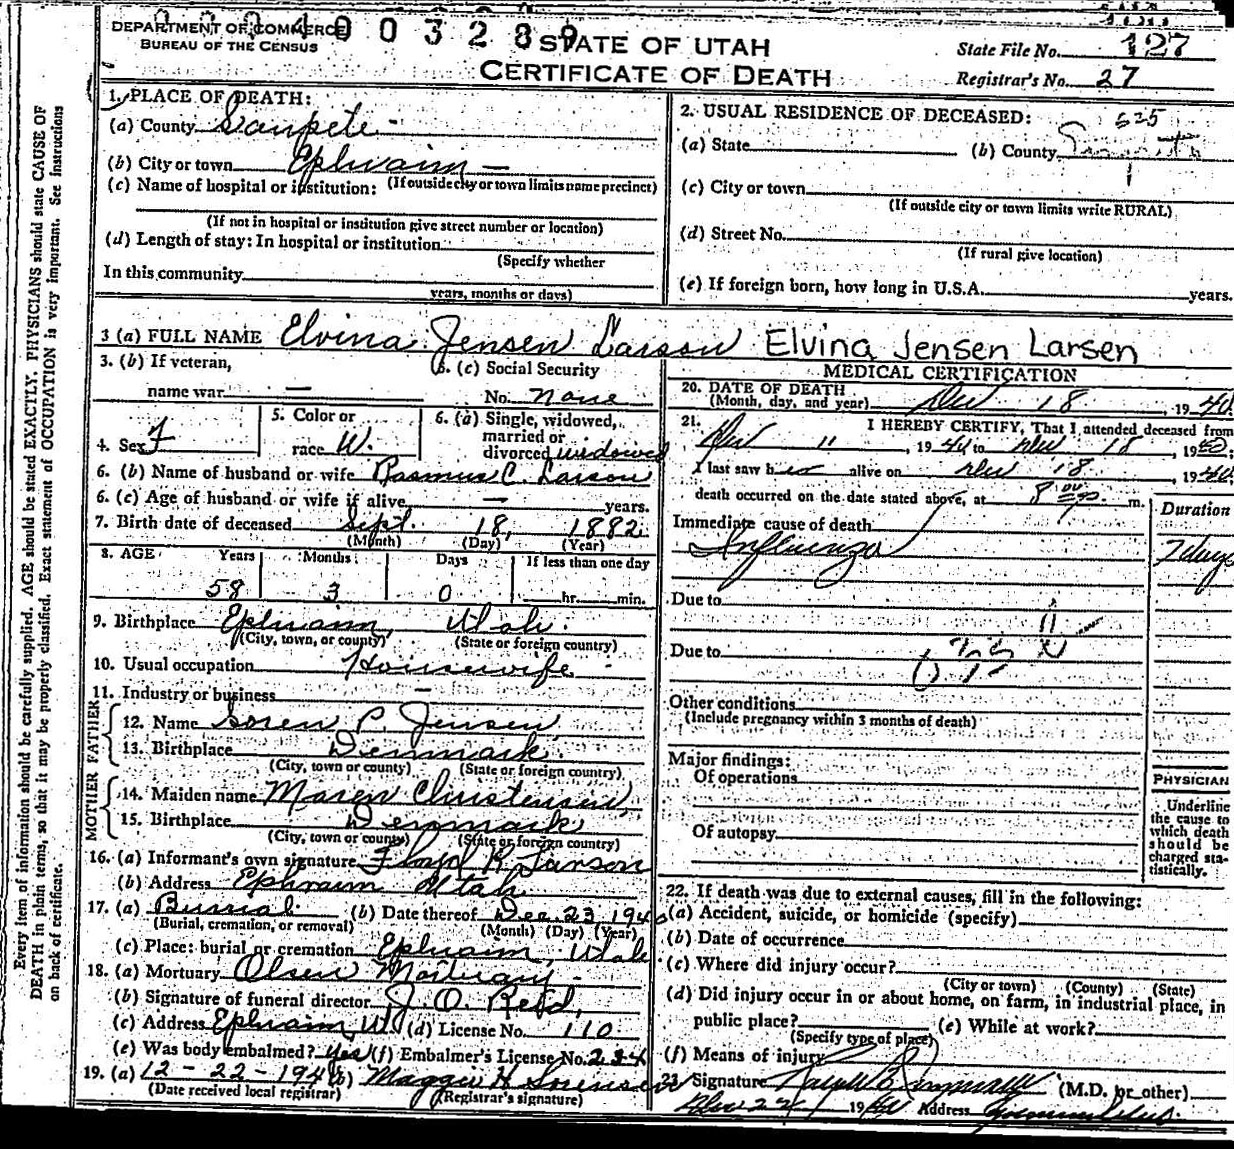 DEPARTMENT OF COMMERCE
BUREAU OF THE CENSUS
STATE OF UTAH
CERTIFICATE OF DEATH
State File No. 127
Registrar's No. 27
Every item of information should be carefully supplied. AGE should be stated EXACTLY. PHYSICIANS should state CAUSE OF
DEATH in plain terms, so that it may be properly classified. Exact statement of OCCUPATION is very important. See instructions
on back of certificate.
1. PLACE OF DEATH:
(a) County Sanpete -
(b) City or town Ephraim -
(If outside city or town limits name precinct)
(c) Name of hospital or institution:
(If not in hospital or institution give street number or location)
(d) Length of stay: In hospital or institution
(Specify whether
In this community
years, months or days)
2. USUAL RESIDENCE OF DECEASED: 525
(a) State (b) County Sanpete
(c) City or town
(If outside city or town limits write RURAL)
(d) Street No.
(If rural give location)
(e) If foreign born, how long in U.S.A. years.
3 (a) FULL NAME Elvina Jensen Larson Elvina Jensen Larsen
3. (b) If veteran,
name war —
3. (c) Social Security
No. none
4. Sex F
5. Color or
race W.
6. (a) Single, widowed,
married or
divorced widowed
6. (b) Name of husband or wife Rasmus C. Larson
6. (c) Age of husband or wife if alive — years.
7. Birth date of deceased Sept. 18, 1882
(Month) (Day) (Year)
8. AGE Years Months Days If less than one day
58 3 0 hr. min.
9. Birthplace Ephraim, Utah.
(City, town, or county) (State or foreign country)
10. Usual occupation Housewife
11. Industry or business —
FATHER
12. Name Soren P. Jensen
13. Birthplace Denmark
(City, town or county) (State or foreign country)
MOTHER
14. Maiden name Maren Christensen
15. Birthplace Denmark
(City, town or county) (State or foreign country)
16. (a) Informant's own signature Floyd R. Larson
(b) Address Ephraim Utah
17. (a) Burial (b) Date thereof Dec. 23 1940
(Burial, cremation, or removal) (Month) (Day) (Year)
(c) Place: burial or cremation Ephraim, Utah
18. (a) Mortuary Olsen Mortuary
(b) Signature of funeral director J. O. Reid,
(c) Address Ephraim, Ut. (d) License No. 110
(e) Was body embalmed? Yes (f) Embalmer's License No. 234
19. (a) 12-22-1940 (b) Maggie H Sorensen
(Date received local registrar) (Registrar's signature)
MEDICAL CERTIFICATION
20. DATE OF DEATH
(Month, day, and year) Dec 18, 1940.
21. I HEREBY CERTIFY, That I attended deceased from
Dec 11, 1940 to Dec 18 1940;
I last saw her alive on Dec 18, 1940
death occurred on the date stated above, at 8 00 m.
Duration
Immediate cause of death
Influenza 7 days
Due to
11
Due to
Other conditions
(Include pregnancy within 3 months of death)
Major findings:
Of operations
Of autopsy
PHYSICIAN
Underline
the cause to
which death
should be
charged sta-
tistically.
22. If death was due to external causes, fill in the following:
(a) Accident, suicide, or homicide (specify)
(b) Date of occurrence
(c) Where did injury occur?
(City or town) (County) (State)
(d) Did injury occur in or about home, on farm, in industrial place, in
public place? (e) While at work?
(Specify type of place)
(f) Means of injury
23. Signature (M.D. or other)
Dec 22 1940 Address